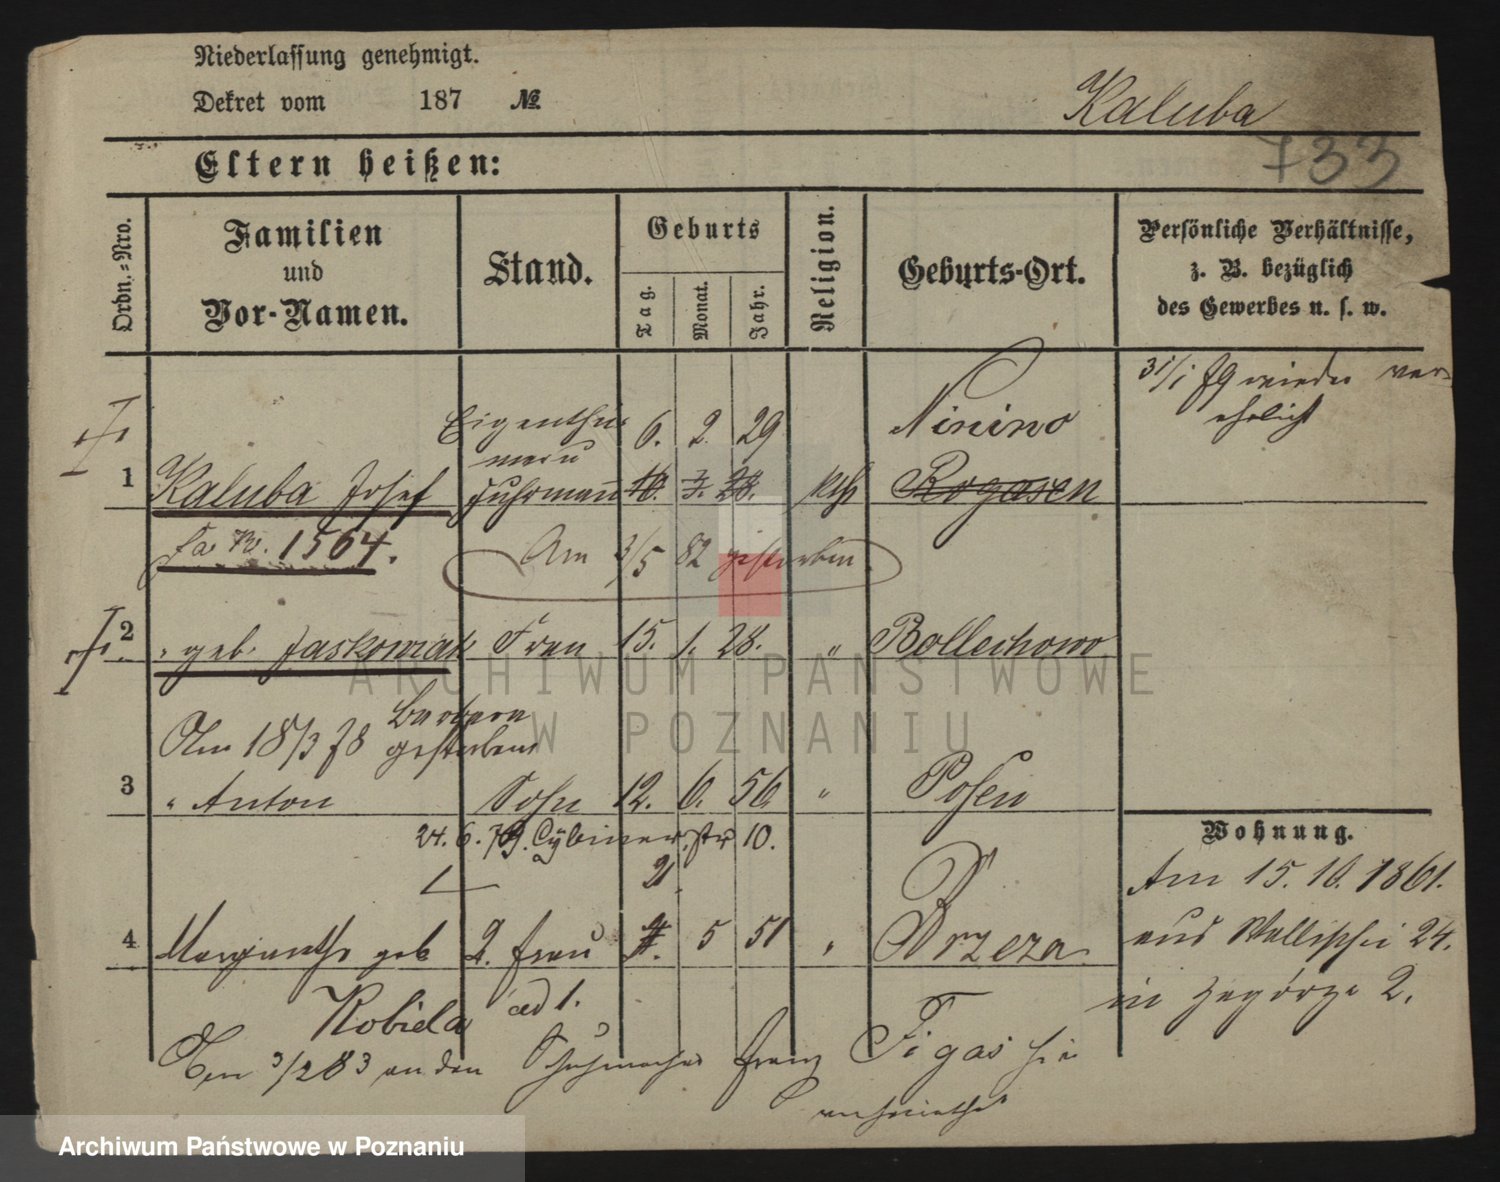 Niederlassung genehmigt.
Dekret vom 187 №
Kaluba
733
Eltern heißen:
Ordn.-Nro.
Familien
und
Vor-Namen.
Stand.
Geburts
Tag.
Monat.
Jahr.
Religion.
Geburts-Ort.
Persönliche Verhältnisse,
z. B. bezüglich
des Gewerbes u. s. w.
31/1 79 wieder ver-
ehelicht
Eigenthü-
mer u
6. 2. 29
Ninino
1 Kaluba Josef Fuhrmann 18. kth Rogasen
1564.
Am 3/5 82 gestorben
2 " geb. Jaskowiak Frau 15. 1. 28. " Bollechowo
Barbara
Am 18/3 78 gestorben
3 " Anton Sohn 12. 6. 56. " Posen
24. 6. 79. Cybiner str 10.
21.
Wohnung.
Am 15. 10. 1861.
aus Wallischei 24.
in Zagórze 2.
4 Margarethe geb 2. Frau 5 51 " Brzeza
Kobiela ad 1.
Den 3/2 83 an den Schuhmacher Franz Figas hie
verheirathet
ARCHIWUM PAŃSTWOWE
W POZNANIU
Archiwum Państwowe w Poznaniu